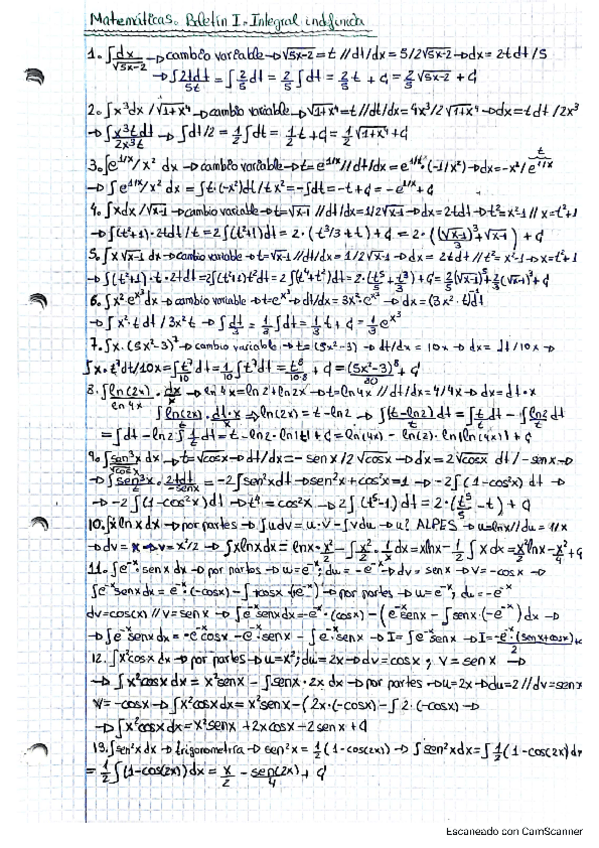 Matemáticas. Boletín I. Integral indefinida
1. ∫dx/√5x-2 → cambio variable → √5x-2 = t // dt/dx = 5/2√5x-2 → dx = 2tdt/5
→ ∫2tdt/5t = ∫2/5 dt = 2/5 ∫dt = 2/5 t + C = 2/5 √5x-2 + C
2. ∫x³dx/√1+x⁴ → cambio variable → √1+x⁴ = t // dt/dx = 4x³/2√1+x⁴ → dx = tdt/2x³
→ ∫x³tdt/2x³t → ∫dt/2 = 1/2 ∫dt = 1/2 t + C = 1/2 √1+x⁴ + C
3. ∫e^1/x/x² dx → cambio variable → t = e^1/x // dt/dx = e^1/x·(-1/x²) → dx = -x²/e^1/x
→ ∫e^1/x/x² dx = ∫t·(-x²)dt/tx² = -∫dt = -t + C = -e^1/x + C
4. ∫xdx/√x-1 → cambio variable → t = √x-1 // dt/dx = 1/2√x-1 → dx = 2tdt → t² = x-1 // x = t²+1
→ ∫(t²+1)·2tdt/t = 2∫(t²+1)dt = 2·(t³/3 + t) + C = 2·((√x-1)³/3 + √x-1) + C
5. ∫x√x-1 dx → cambio variable → t = √x-1 // dt/dx = 1/2√x-1 → dx = 2tdt // t² = x-1 → x = t²+1
→ ∫(t²+1)·t·2tdt = 2∫(t²+1)t²dt = 2∫(t⁴+t²)dt = 2·(t⁵/5 + t³/3) + C = 2/5(√x-1)⁵ + 2/3(√x-1)³ + C
6. ∫x²e^x³dx → cambio variable → t = e^x³ → dt/dx = 3x²·e^x³ → dx = (3x²·t)⁻¹dt
→ ∫x²·t dt/3x²t → ∫dt/3 = 1/3 ∫dt = 1/3 t + C = 1/3 e^x³
7. ∫x·(5x²-3)⁷ → cambio variable → t = (5x²-3) → dt/dx = 10x → dx = dt/10x →
∫x·t⁷dt/10x = ∫t⁷/10 dt = 1/10 ∫t⁷dt = t⁸/10·8 + C = (5x²-3)⁸/80 + C
8. ∫ln(2x)/ln4x · dx/x → ln4x = ln2+ln2x → t = ln4x // dt/dx = 4/4x → dx = dt·x
∫ln(2x)/t · dt·x/x → ln(2x) = t-ln2 → ∫(t-ln2)dt/t = ∫t/t dt - ∫ln2/t dt
= ∫dt - ln2∫1/t dt = t - ln2·ln|t| + C = ln(4x) - ln(2)·ln|ln(4x)| + C
9. ∫sen³x/√cosx dx → t = √cosx → dt/dx = -senx/2√cosx → dx = 2√cosx dt/-senx →
→ ∫sen³x/t · 2tdt/-senx = -2∫sen²xdt → sen²x+cos²x = 1 → -2∫(1-cos²x)dt →
→ -2∫(1-cos²x)dt → t⁴ = cos²x → 2∫(t⁴-1)dt = 2·(t⁵/5 - t) + C
10. ∫xlnxdx → por partes → ∫udv = u·v-∫vdu → u? ALPES → u = lnx // du = 1/x
→ dv = x → v = x²/2 → ∫xlnxdx = lnx·x²/2 - ∫x²/2·1/x dx = xlnx - 1/2∫xdx = x²/2 lnx - x²/4 + C
11. ∫e⁻ˣ·senxdx → por partes → u = e⁻ˣ; du = -e⁻ˣ → dv = senx → v = -cosx →
∫e⁻ˣsenxdx = e⁻ˣ·(-cosx) - ∫+cosx·(e⁻ˣ) → por partes → u = e⁻ˣ, du = -e⁻ˣ
dv = cos(x) // v = senx → ∫e⁻ˣsenxdx = -e⁻ˣ·(cosx) - (e⁻ˣsenx - ∫senx·(-e⁻ˣ)dx →
→ ∫e⁻ˣsenxdx = -e⁻ˣcosx - e⁻ˣsenx - ∫e⁻ˣsenx → I = ∫e⁻ˣsenx → I = -e⁻ˣ·(senx+cosx)/2 + C
12. ∫x²cosxdx → por partes → u = x²; du = 2x → dv = cosx; v = senx →
→ ∫x²cosxdx = x²senx - ∫senx·2xdx → por partes → u = 2x → du = 2 // dv = senx
v = -cosx → ∫x²cosxdx = x²senx - (2x·(-cosx) - ∫2·(-cosx) →
→ ∫x²cosxdx = x²senx + 2xcosx - 2senx + C
13. ∫sen²xdx → trigonometría → sen²x = 1/2(1-cos(2x)) → ∫sen²xdx = ∫1/2(1-cos(2x)dx
= 1/2∫(1-cos(2x))dx = x/2 - sen(2x)/4 + C
Escaneado con CamScanner